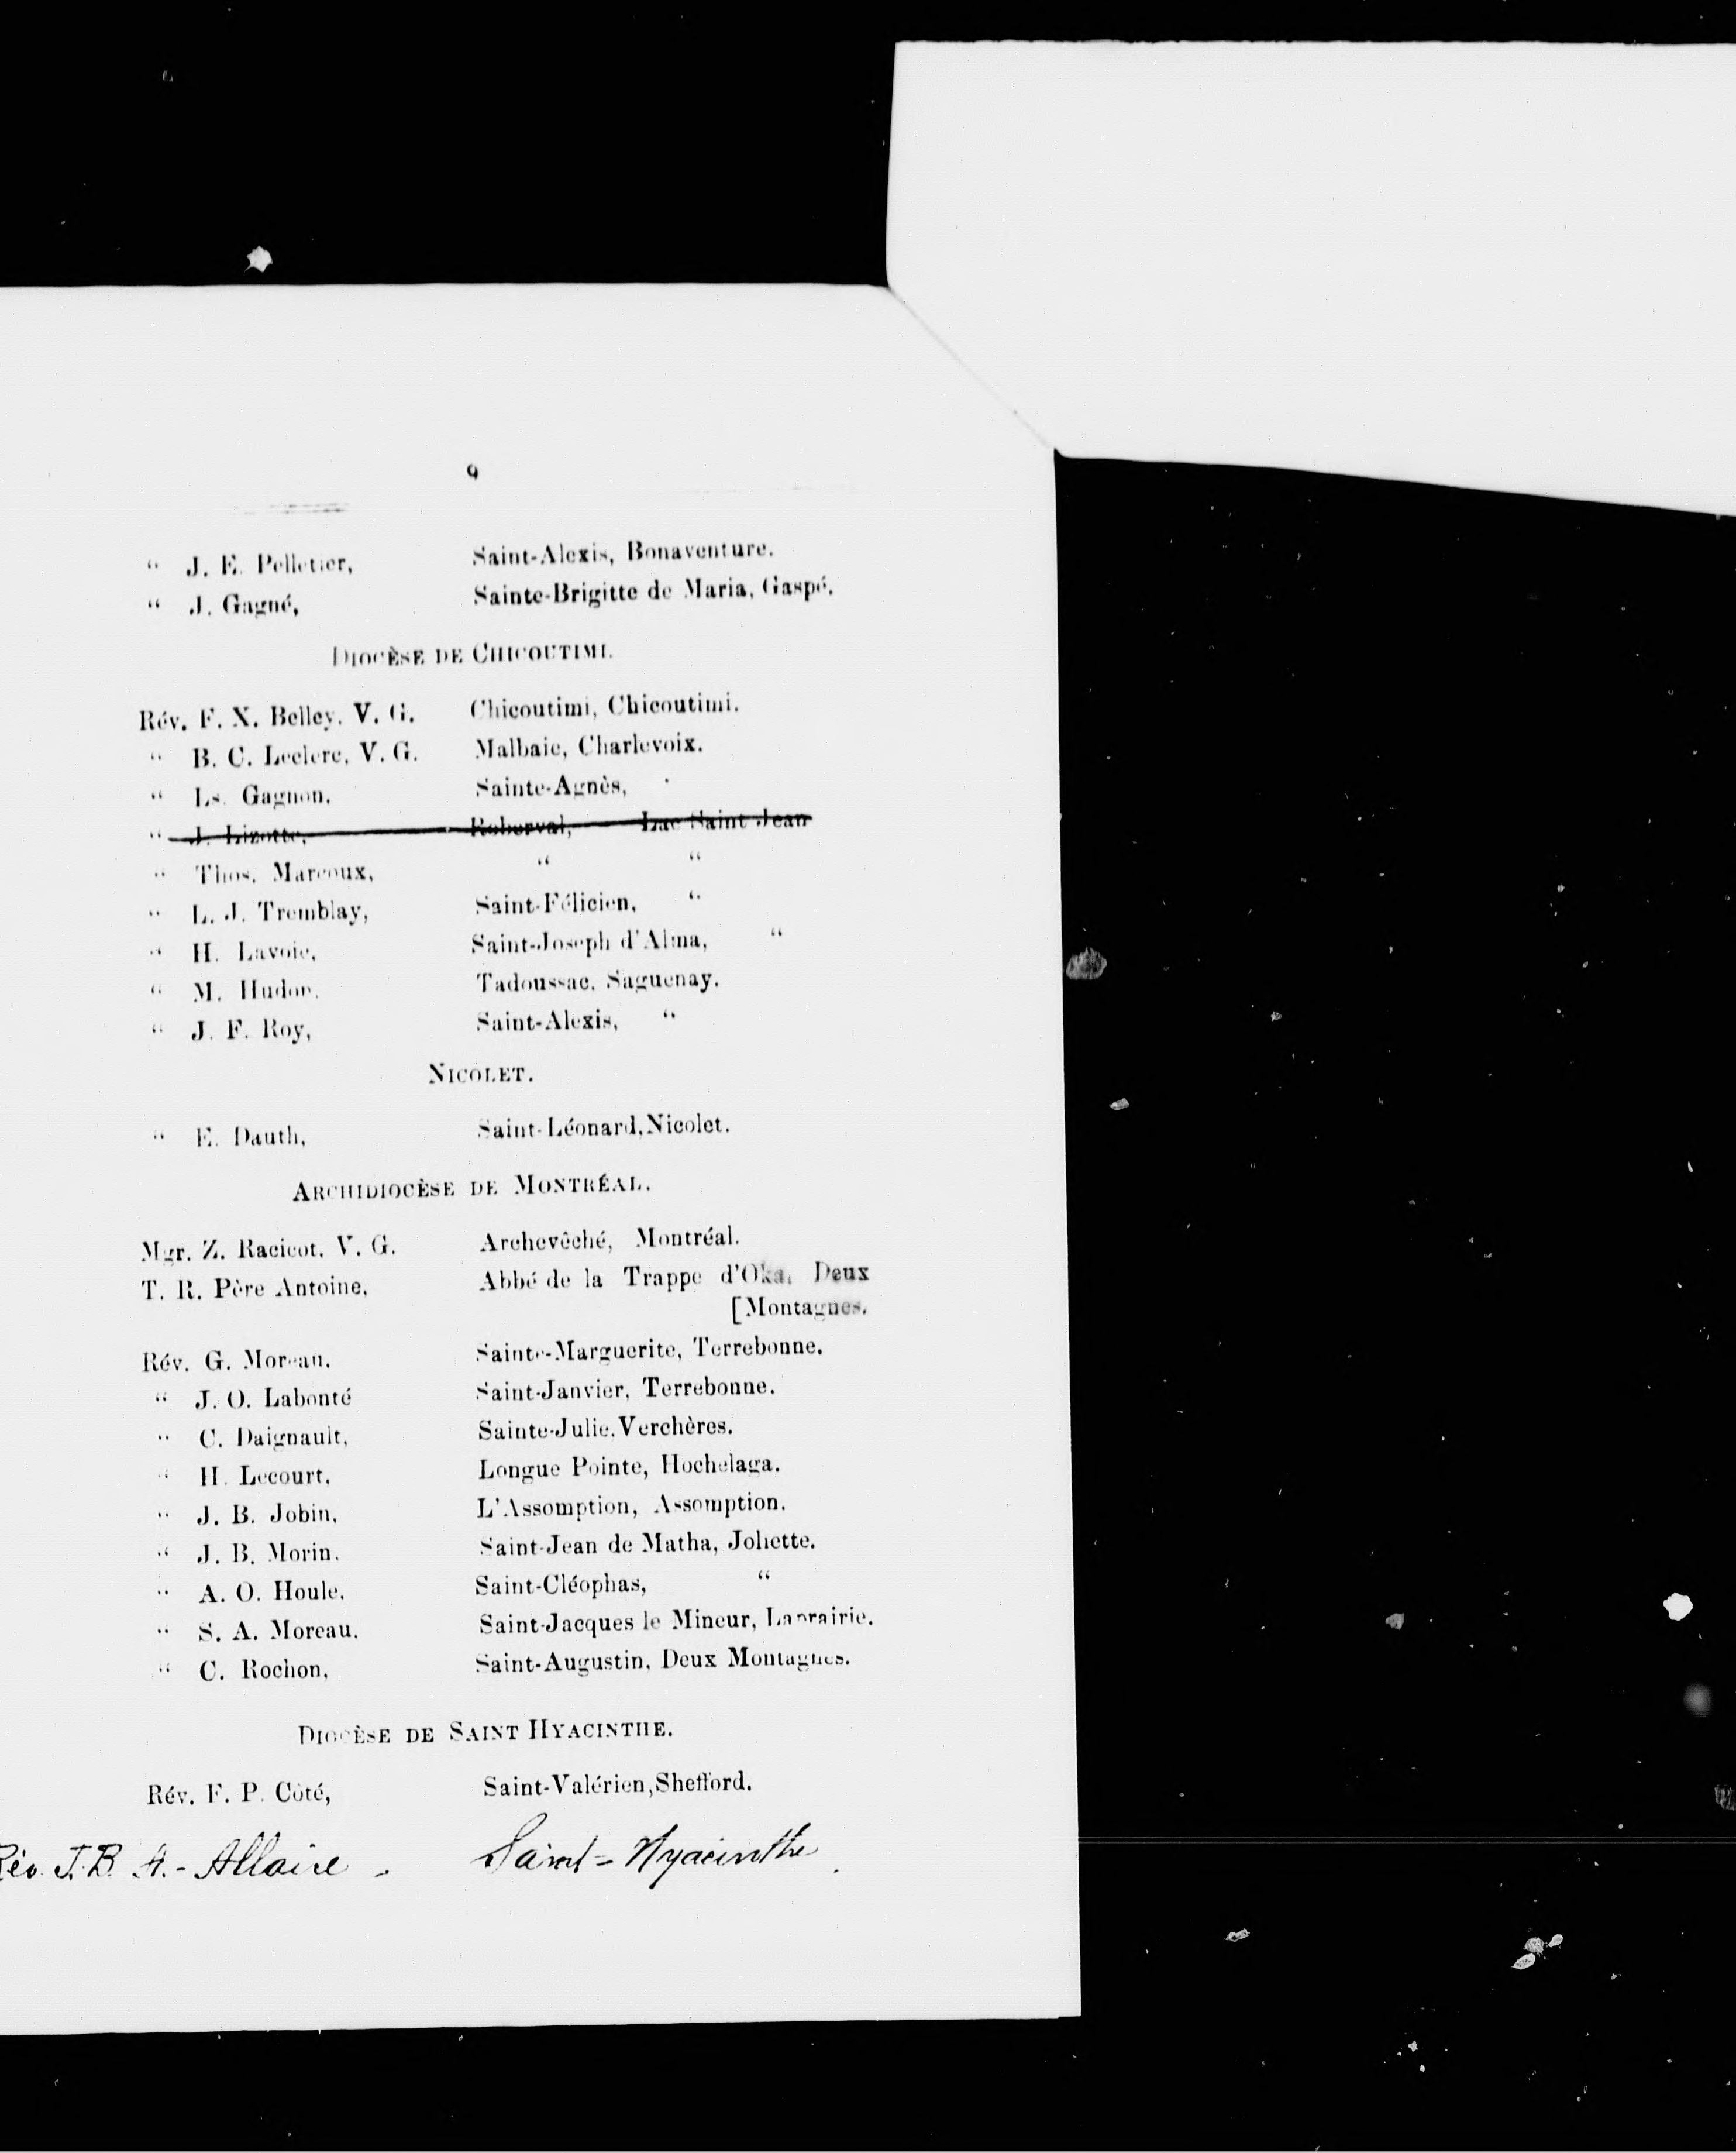 9
" J. E. Pelletier, Saint-Alexis, Bonaventure.
" J. Gagné, Sainte-Brigitte de Maria, Gaspé.
DIOCÈSE DE CHICOUTIMI.
Rév. F. X. Belley, V. G. Chicoutimi, Chicoutimi.
" B. C. Leclerc, V. G. Malbaie, Charlevoix.
" Ls. Gagnon, Sainte-Agnès, "
" J. Lizotte, Roberval, Lac Saint Jean
" Thos. Marcoux, " "
" L. J. Tremblay, Saint-Félicien, "
" H. Lavoie, Saint-Joseph d'Alma, "
" M. Hudon, Tadoussac, Saguenay.
" J. F. Roy, Saint-Alexis, "
NICOLET.
" E. Dauth, Saint-Léonard, Nicolet.
ARCHIDIOCÈSE DE MONTRÉAL.
Mgr. Z. Racicot, V. G. Archevêché, Montréal.
T. R. Père Antoine, Abbé de la Trappe d'Oka, Deux
[Montagnes.
Rév. G. Moreau, Sainte-Marguerite, Terrebonne.
" J. O. Labonté Saint-Janvier, Terrebonne.
" C. Daignault, Sainte-Julie, Verchères.
" H. Lecourt, Longue Pointe, Hochelaga.
" J. B. Jobin, L'Assomption, Assomption.
" J. B. Morin, Saint-Jean de Matha, Joliette.
" A. O. Houle, Saint-Cléophas, "
" S. A. Moreau, Saint-Jacques le Mineur, Laprairie.
" C. Rochon, Saint-Augustin, Deux Montagnes.
DIOCÈSE DE SAINT HYACINTHE.
Rév. F. P. Côté, Saint-Valérien, Shefford.
Rév. J. B. A.- Allaire. Saint-Hyacinthe.